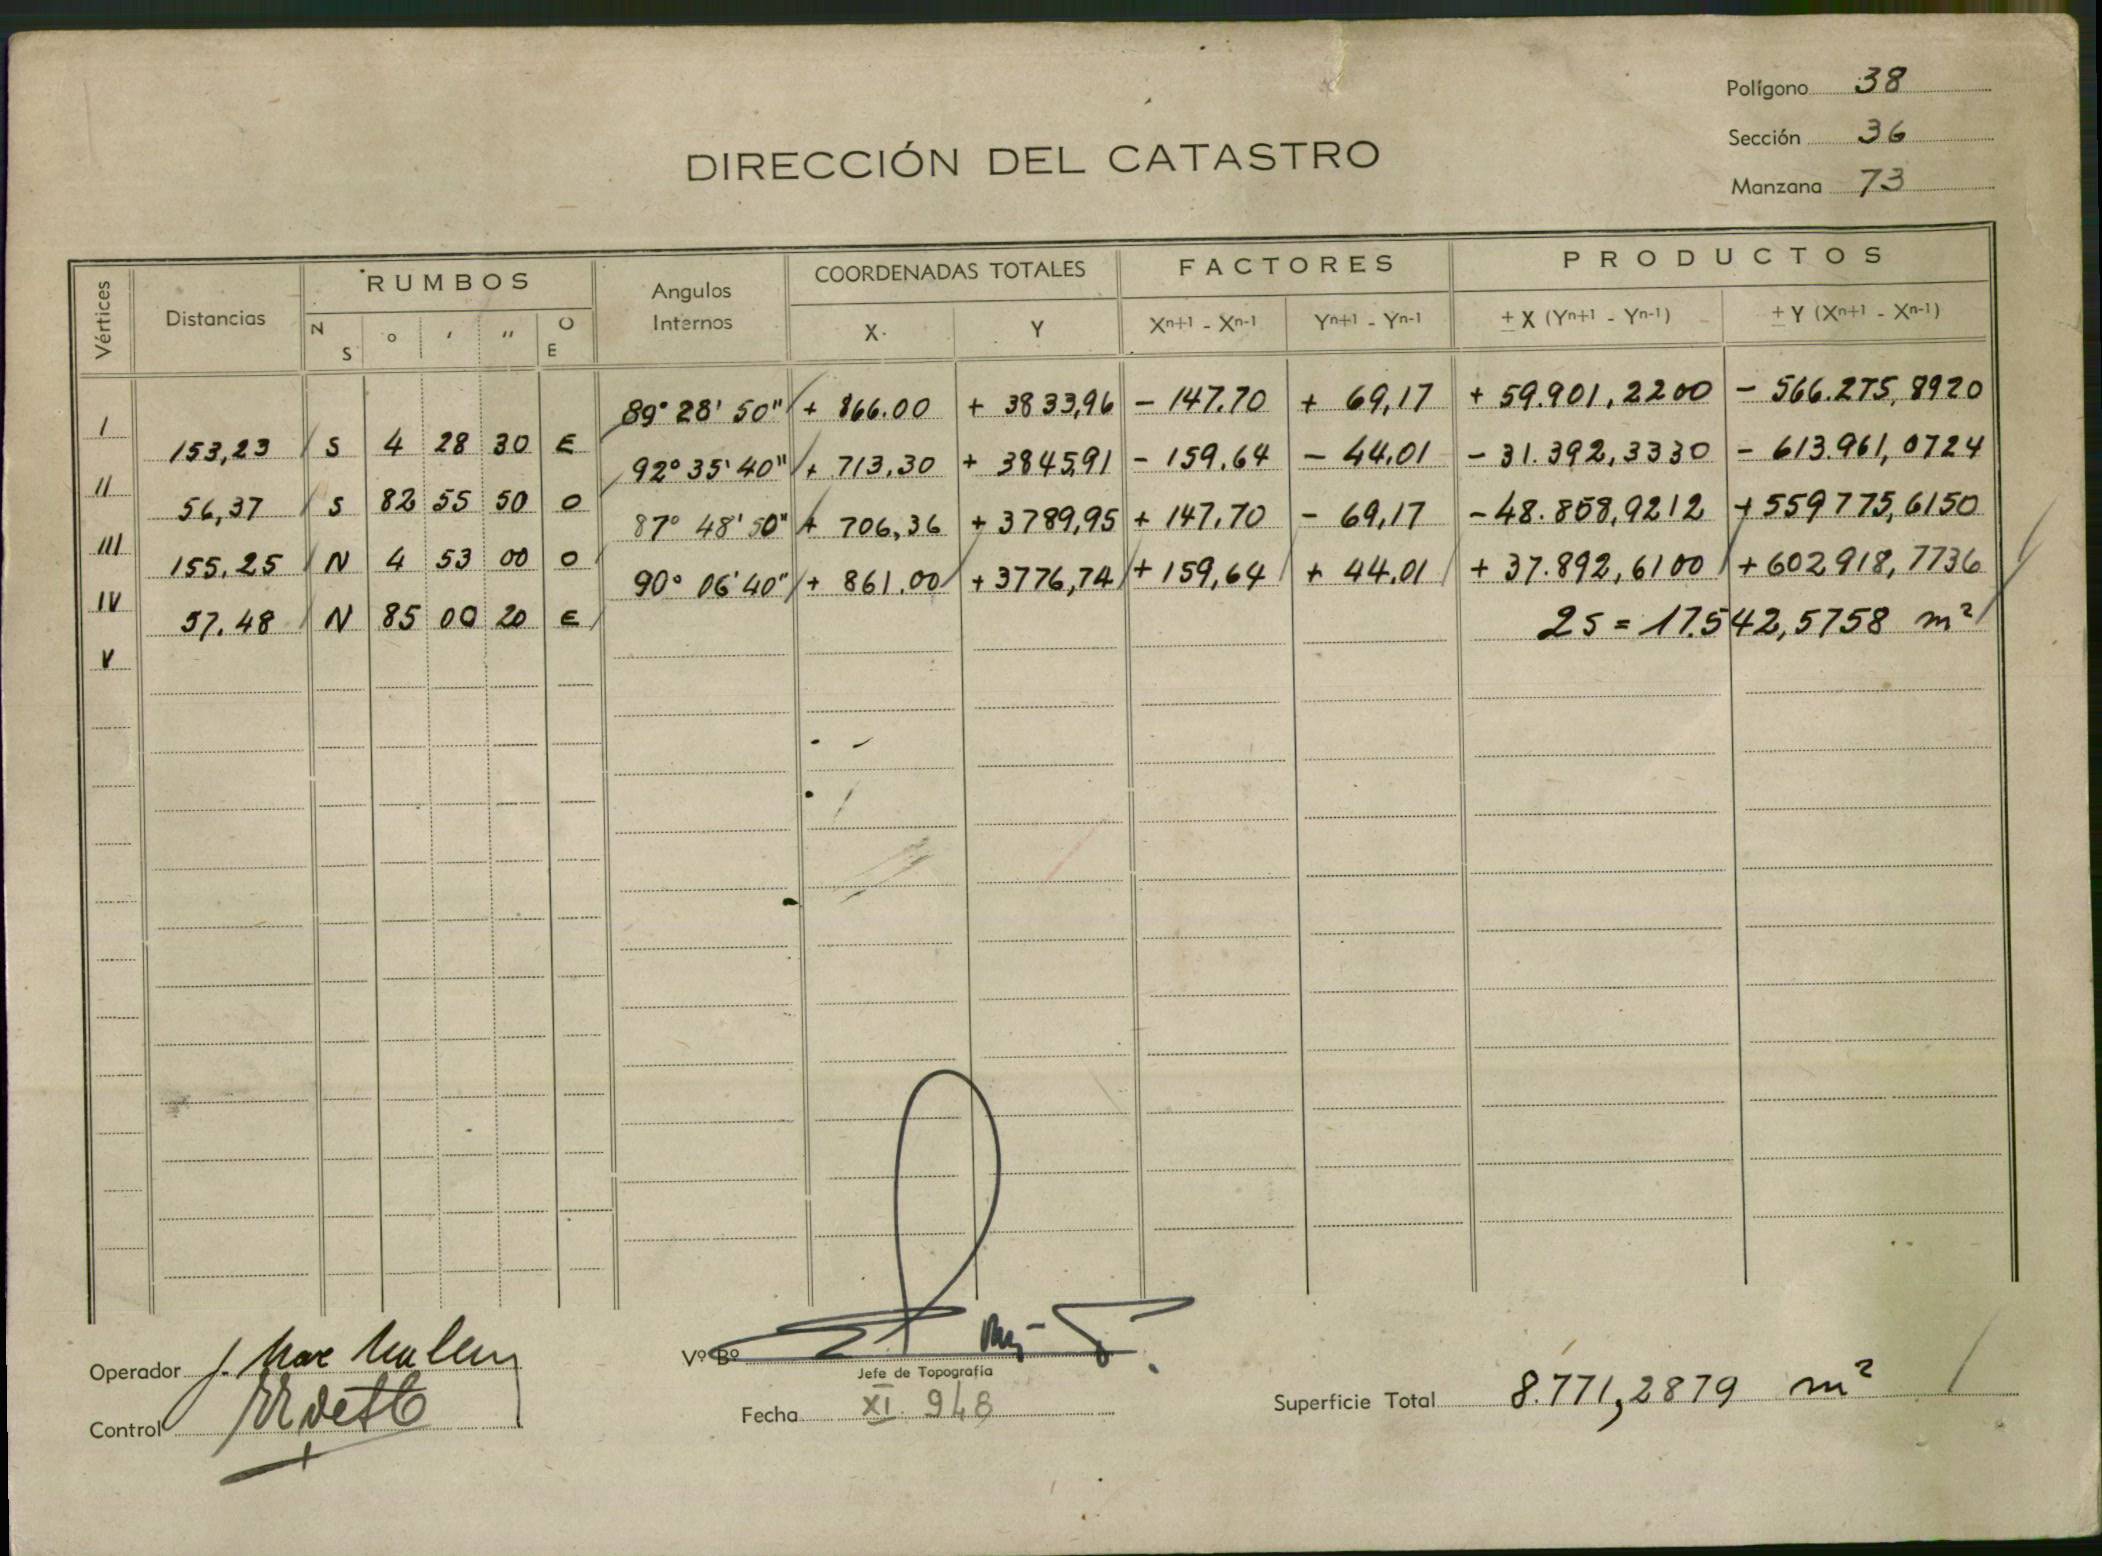 Polígono 38
Sección 36
Manzana 73
DIRECCIÓN DEL CATASTRO
Vértices Distancias RUMBOS Angulos Internos COORDENADAS TOTALES FACTORES PRODUCTOS
N S ° ′ ″ O E X Y Xn+1 - Xn-1 Yn+1 - Yn-1 ± X (Yn+1 - Yn-1) ± Y (Xn+1 - Xn-1)
I 89° 28' 50" + 866.00 + 3833,96 - 147.70 + 69,17 + 59.901,2200 - 566.275,8920
153,23 S 4 28 30 E
II 92° 35' 40" + 713.30 + 3845,91 - 159.64 - 44.01 - 31.392,3330 - 613.961,0724
56,37 S 82 55 50 O
III 87° 48' 50" + 706,36 + 3789,95 + 147.70 - 69,17 - 48.858,9212 + 559775,6150
155.25 N 4 53 00 O
IV 90° 06' 40" + 861.00 + 3776,74 + 159,64 + 44.01 + 37.892,6100 + 602918,7736
57.48 N 85 00 20 E
2S = 17.542,5758 m²
V
Operador
Control
Vº Bº
Jefe de Topografía
Fecha XI. 948
Superficie Total 8.771,2879 m²